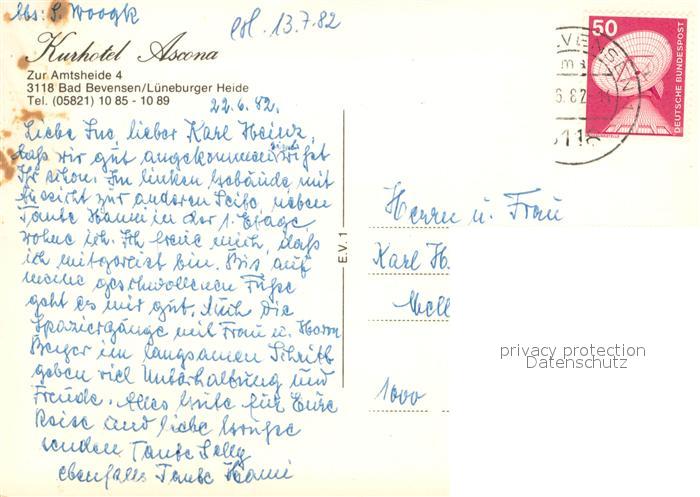 Abs: S. Woogk
erl. 13.7.82
Kurhotel Ascona
Zur Amtsheide 4
3118 Bad Bevensen/Lüneburger Heide
Tel. (05821) 10 85 - 10 89
22.6.82.
Liebe Inc, lieber Karl Heinz,
daß wir gut angekommen sind wißt
Ihr schon. Im linken Gebäude mit
Aussicht zur anderen Seite, neben
Tante Hanni in der 1. Etage
wohne ich. Ich freue mich, daß
ich mitgereist bin. Bis auf
meine geschwollenen Füße
geht es mir gut. Auch die
Spaziergänge mit Frau u. Herrn
Berger im langsamen Schritt
geben viel Unterhaltung und
Freude. Alles Gute für Eure
Reise und liebe Grüße
senden Tante Selly
ebenfalls Tante Hanni
E.V. 1
50
DEUTSCHE BUNDESPOST
BEVENSEN 1
6.82
3118
Herrn u. Frau
Karl H.
Mell
1000
privacy protection
Datenschutz